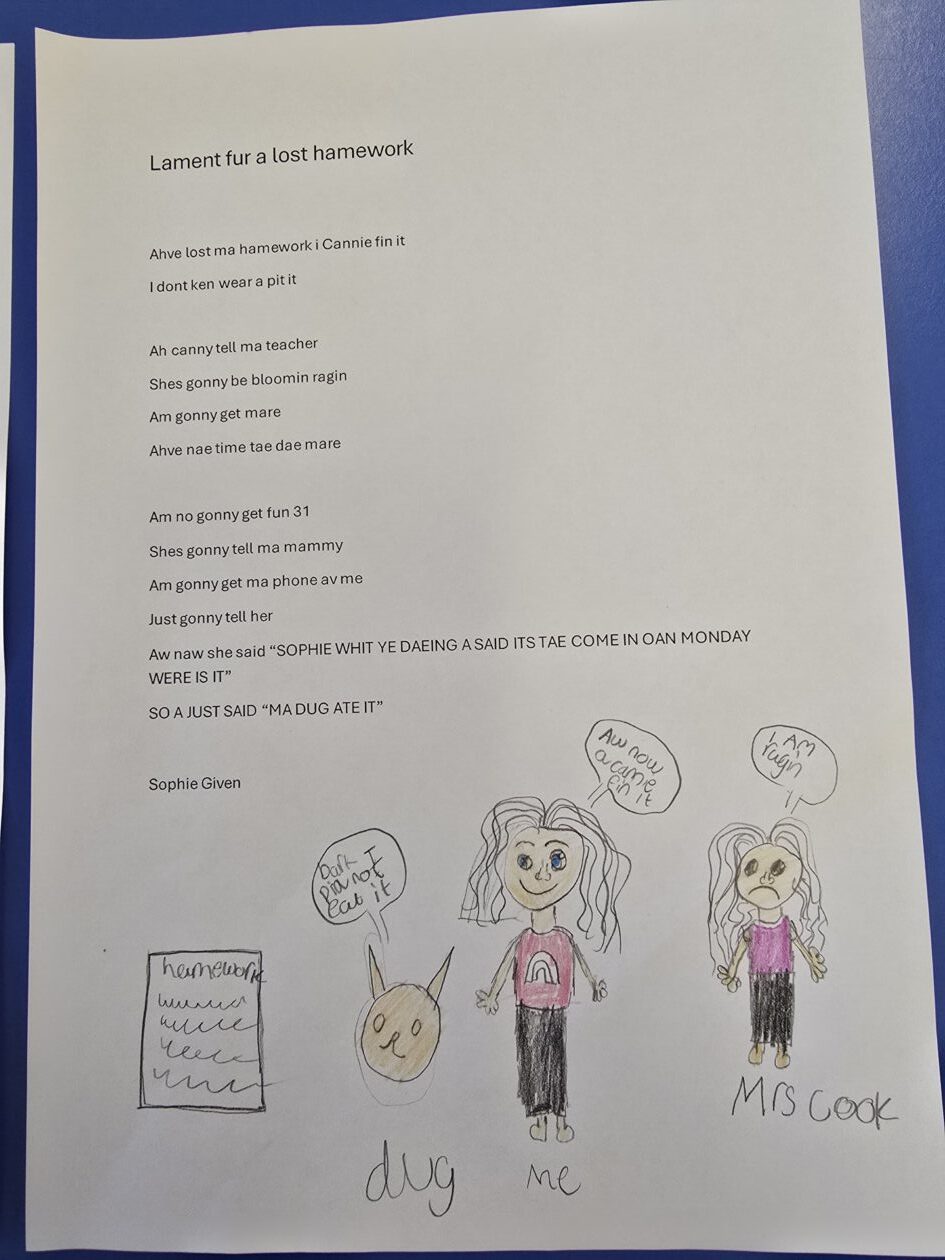 Lament fur a lost hamework
Ahve lost ma hamework i Cannie fin it
I dont ken wear a pit it
Ah canny tell ma teacher
Shes gonny be bloomin ragin
Am gonny get mare
Ahve nae time tae dae mare
Am no gonny get fun 31
Shes gonny tell ma mammy
Am gonny get ma phone av me
Just gonny tell her
Aw naw she said “SOPHIE WHIT YE DAEING A SAID ITS TAE COME IN OAN MONDAY
WERE IS IT”
SO A JUST SAID “MA DUG ATE IT”
Sophie Given
Aw now
a
fin it
I AM
ragin
I
not
eat it
hamework
dug
me
Mrs Cook